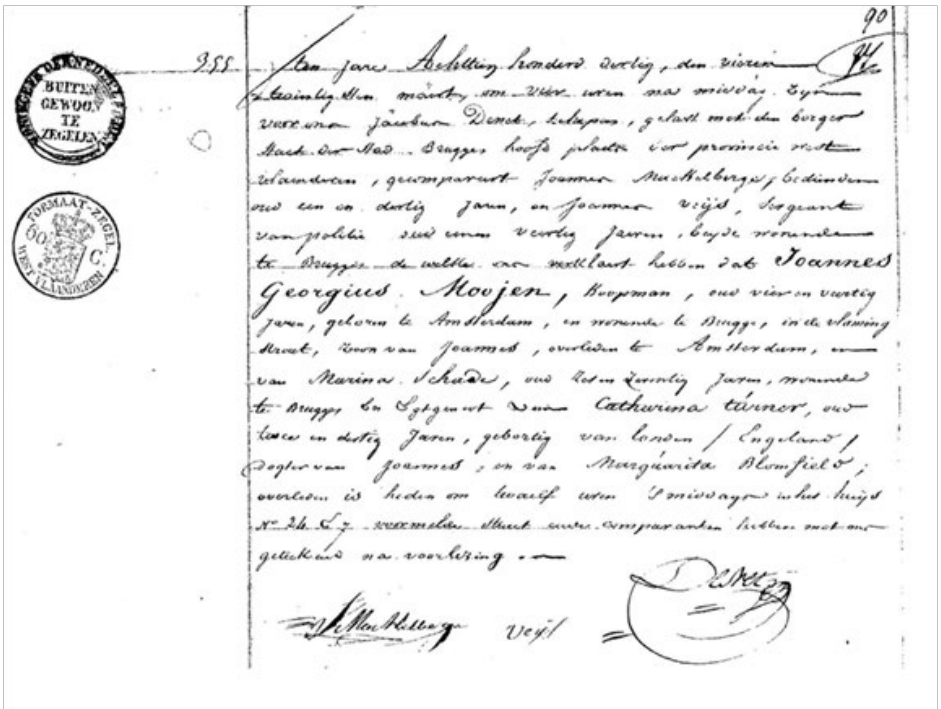 90
355
BUITEN
GEWOON
TE
ZEGELEN
FORMAAT-ZEGEL
60 C.
WEST VLAANDEREN
ten jare Achttien honderd dertig, den vieren
twintigsten maart, om vier uren na middag Zyn
voor ons Jacobus Denet, Schepen, gelast met den borger
Staet der Stad Brugge hoofd plaets der provincie west
vlaenderen, gecompareert Joannes Muckelberge, bedienden
oud een en dertig Jaren, en Joannes Veijs, Sergeant
van politie oud eenen veertig Jaeren, beyde wonende
te Brugge de welke ons verklaert hebben dat Joannes
Georgius Moojen, Koopman, oud vier en veertig
Jaren, geboren te Amsterdam, en wonende te Brugge, in de vlaming
straet, Zoon van Joannes, overleden te Amsterdam, en
van Marina Schade, oud Zes en Zeventig Jaren, wonende
te Brugge En Egtgenoot van Catharina túrner, oud
twee en dertig Jaren, gebortig van londen / Engeland /
dogter van Joannes, en van Marguarita Blomfield;
overleden is heden om twaelf uren 'Smiddags in het huijs
N° 24 E 7 voormelde Straet ende comparanten hebben met ons
geteekend na voorlezing
Veijs
Denet